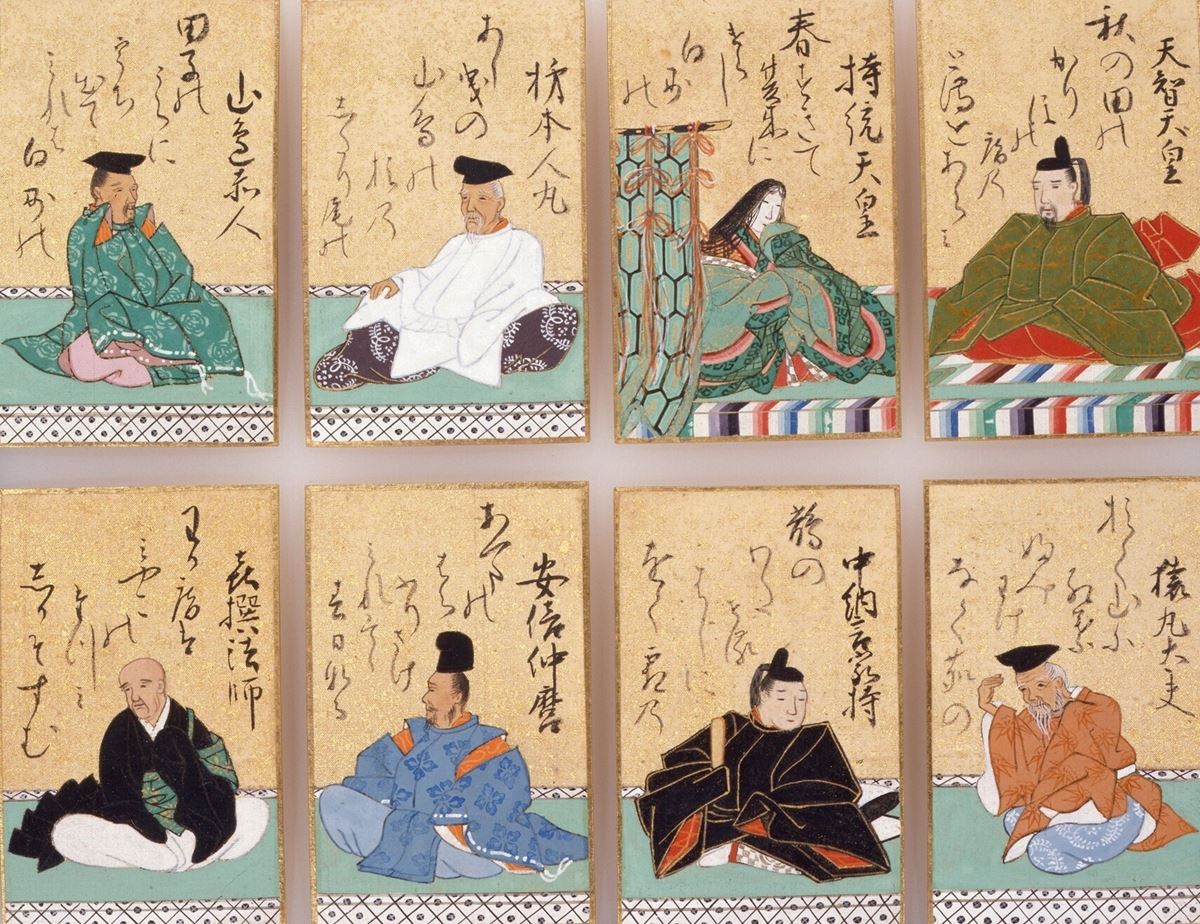 天智天皇
秋の田の
かり
ほの
庵の
とまをあらミ
持統天皇
春すきて
夏来に
けらし
白妙の
柿本人丸
あし
曳の
山鳥の
おの
したり尾の
山邊赤人
田子の
うらに
うち
出て
みれは
白妙の
猿丸大夫
おく山に
紅葉
ふみ
わけ
なく鹿の
中納言家持
鵲の
わたせる
はしに
をく霜の
安倍仲麿
あまの
はら
ふりさけ
みれは
春日なる
喜撰法師
わか庵は
みやこの
たつミ
しかそすむ